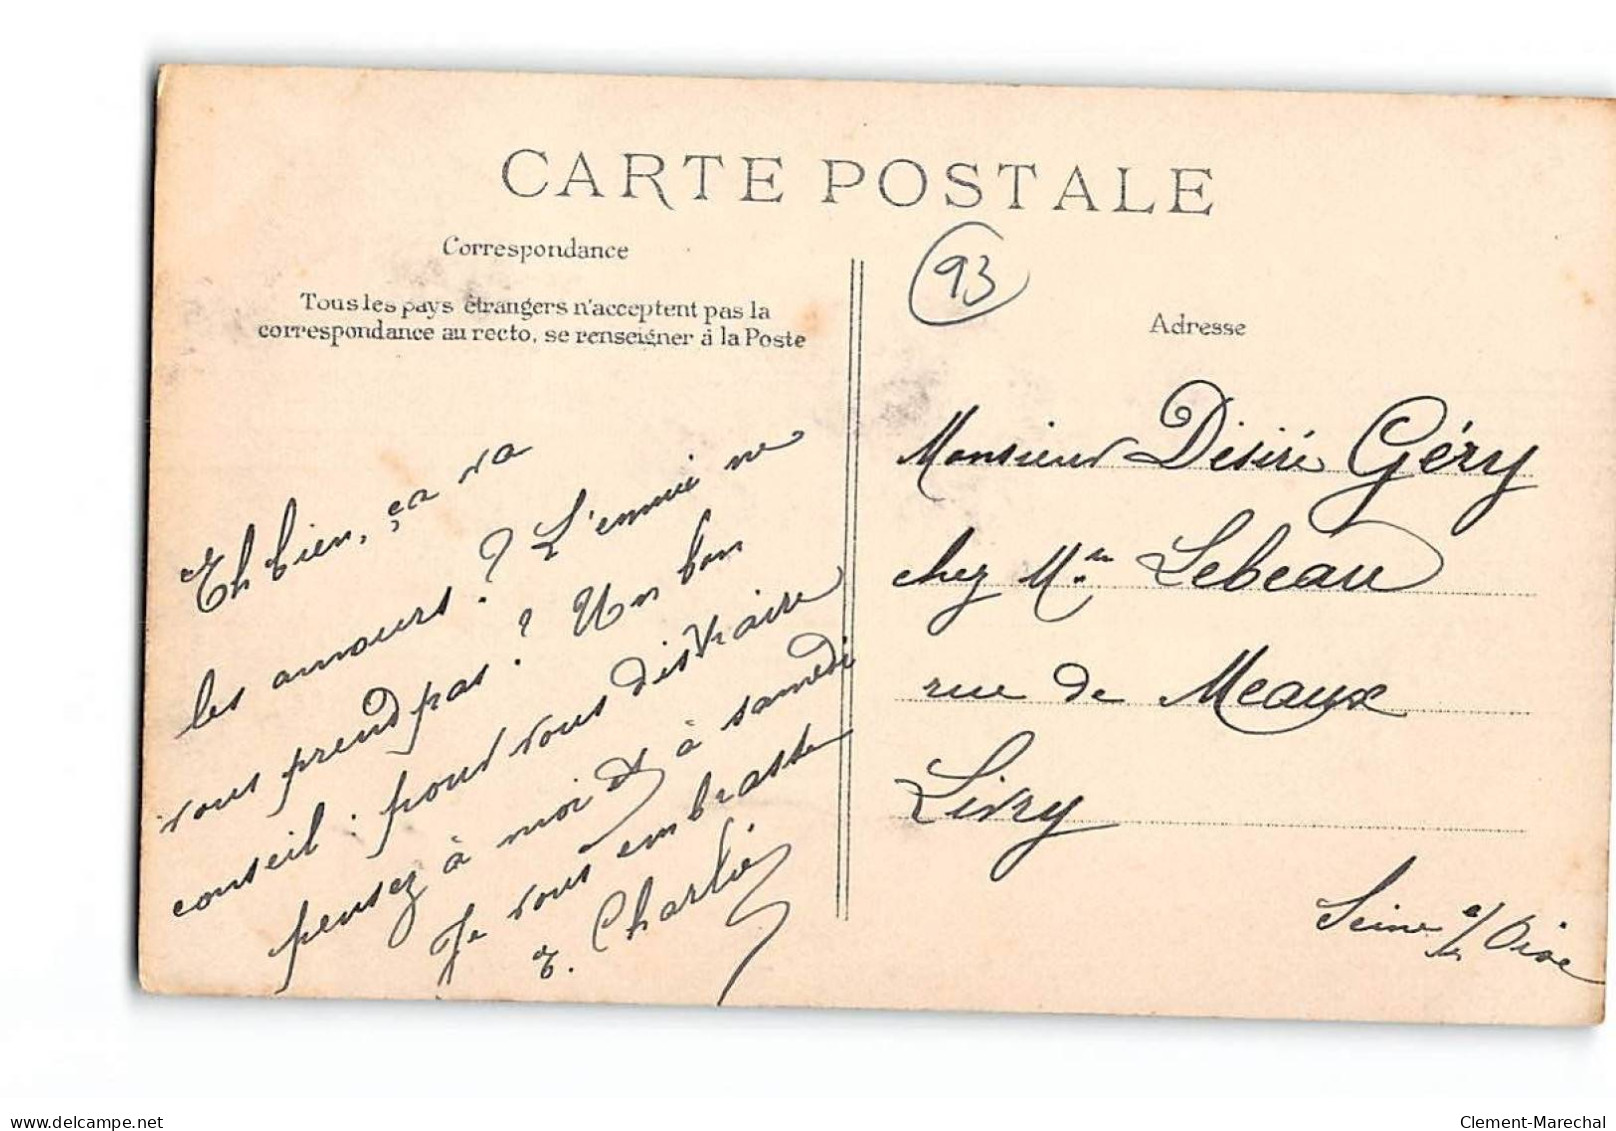 CARTE POSTALE
Correspondance
Tous les pays étrangers n'acceptent pas la
correspondance au recto, se renseigner à la Poste
Eh bien, ça va
les amours ? L'ennui ne
vous prend pas ? Un bon
conseil : pour vous distraire
pensez à moi et à samedi
Je vous embrasse
E. Charlié
93
Adresse
Monsieur Désiré Géry
chez Mr Lebeau
rue de Meaux
Livry
Seine et/Oise
delcampe.net
Clement-Marechal